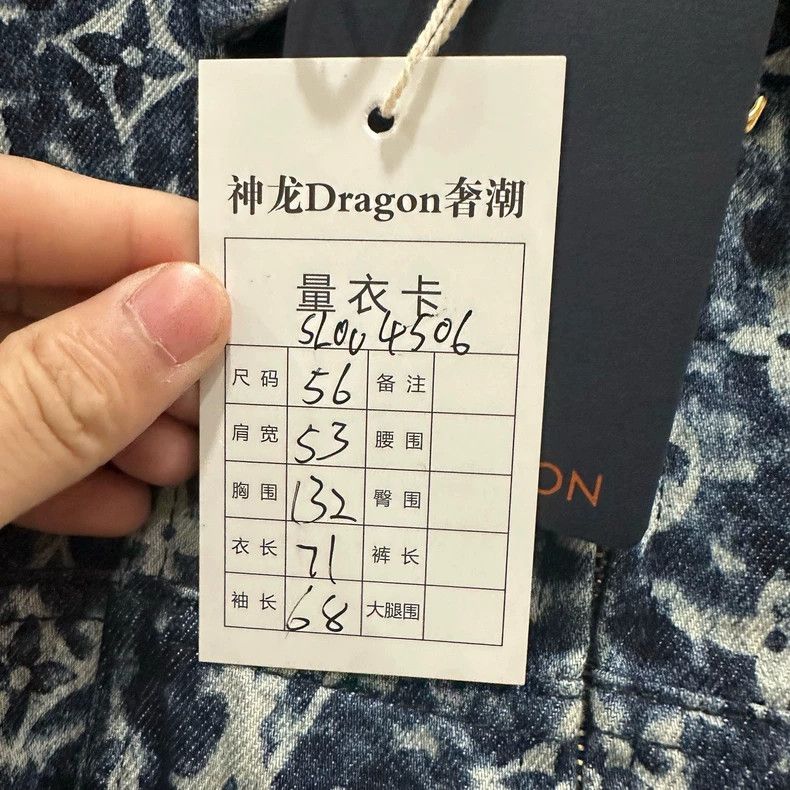 神龙Dragon奢潮
量衣卡
SLOU4506
尺码 56 备注
肩宽 53 腰围
胸围 132 臀围
衣长 71 裤长
袖长 68 大腿围
ON